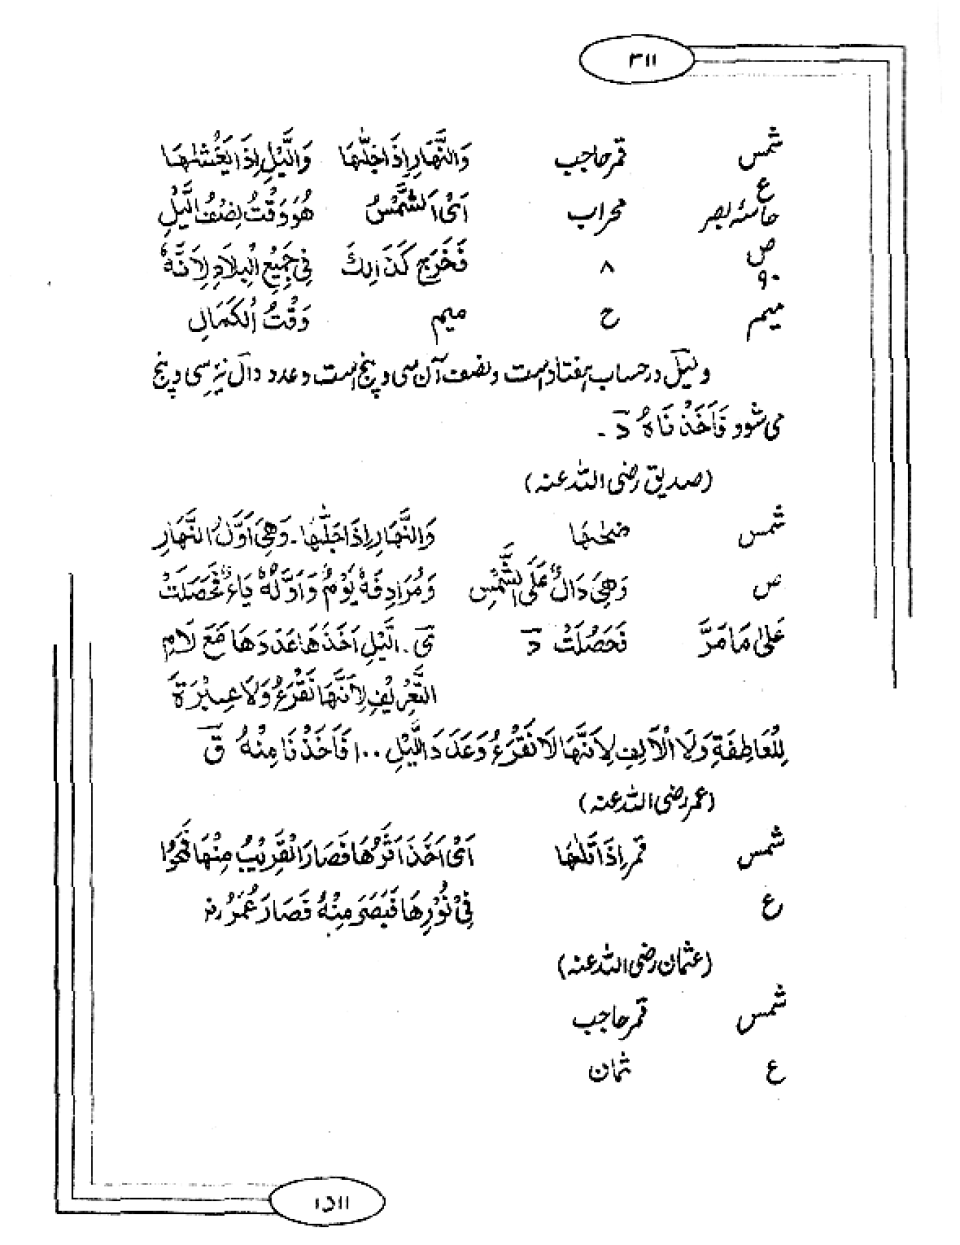 ۳۱۱
شمس قمر حاجب وَالنَّهَارِ اِذَا جَلّٰهَا وَالَّيْلِ اِذَا يَغْشٰهَا
ع
حاسۂ بصر محراب اَىْ اَلشَّمْسُ هُوَ وَقْتُ نِصْفُ الَّيْلِ
ص
۹۰ ۸ فَخَرَجَ كَذَالِكَ فِى جَمِيْعِ الْبِلَادِ لِاَنَّهٗ
میم ح میم وَقْتُ الْكَمَالِ
و لَیل در حساب ہفتاد است و نصف آن سی و پنج است و عدد دال نیز سی و پنج
می شود فَاَخَذْنَاهُ دٓ ۔
(صدیق رضی اللہ عنہ)
شمس ضحٰھا وَالنَّهَارِ اِذَا جَلّٰهَا ۔ وَهِىَ اَوَّلُ النَّهَارِ
ص وَهِىَ دَالٌ عَلَى الشَّمْسِ وَمُرَادِفَهٗ يَوْمٌ وَاَوَّلُهٗ يَاءٌ فَحَصَلَتْ
عَلٰى مَا مَرَّ فَحَصُلَتْ دٓ ىٓ . الَّيْلِ اَخَذَهَا عَدَدَهَا مَعَ لَامِ
التَّعْرِيْفِ لِاَنَّهَا تَقْرَءُ وَلَا عِبْرَةَ
لِلْعَاطِفَةِ وَلَا الْاَلِفِ لِاَنَّهَا لَا تَقْرَءُ وَعَدَدَ الَّيْلِ ۱۰۰ فَاَخَذْنَا مِنْهُ قٓ
(عمر رضی اللہ عنہ)
شمس قمر اِذَا تَلٰهَا اَىْ اَخَذَ اَثَرُهَا فَصَارَ الْقَرِيْبُ مِنْهَا
ع فِىْ نُوْرِهَا فَبَصَرَ مِنْهُ فَصَارَ عُمَرُ رض
(عثمان رضی اللہ عنہ)
شمس قمر حاجب
ع ثمان
۱۵۱۱